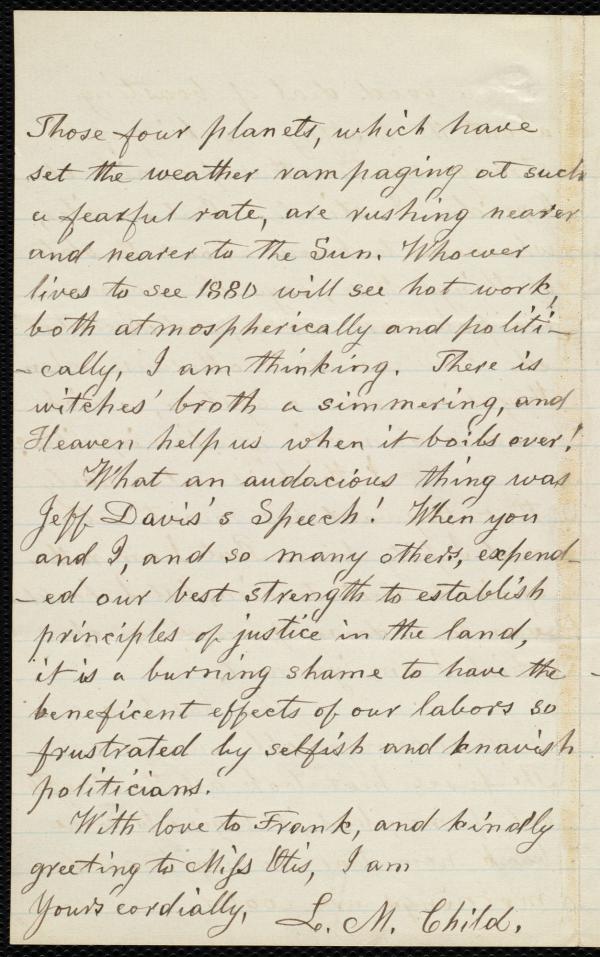 Those four planets, which have
set the weather rampaging at such
a fearful rate, are rushing nearer
and nearer to the Sun. Whoever
lives to see 1880 will see hot work,
both atmospherically and politi-
-cally, I am thinking. There is
witches' broth a simmering, and
Heaven help us when it boils over!
What an audacious thing was
Jeff Davis's Speech! When you
and I, and so many others, expend-
-ed our best strength to establish
principles of justice in the land,
it is a burning shame to have the
beneficent effects of our labors so
frustrated by selfish and knavish
politicians.
With love to Frank, and kindly
greeting to Miss Otis, I am
Yours cordially,
L. M. Child.